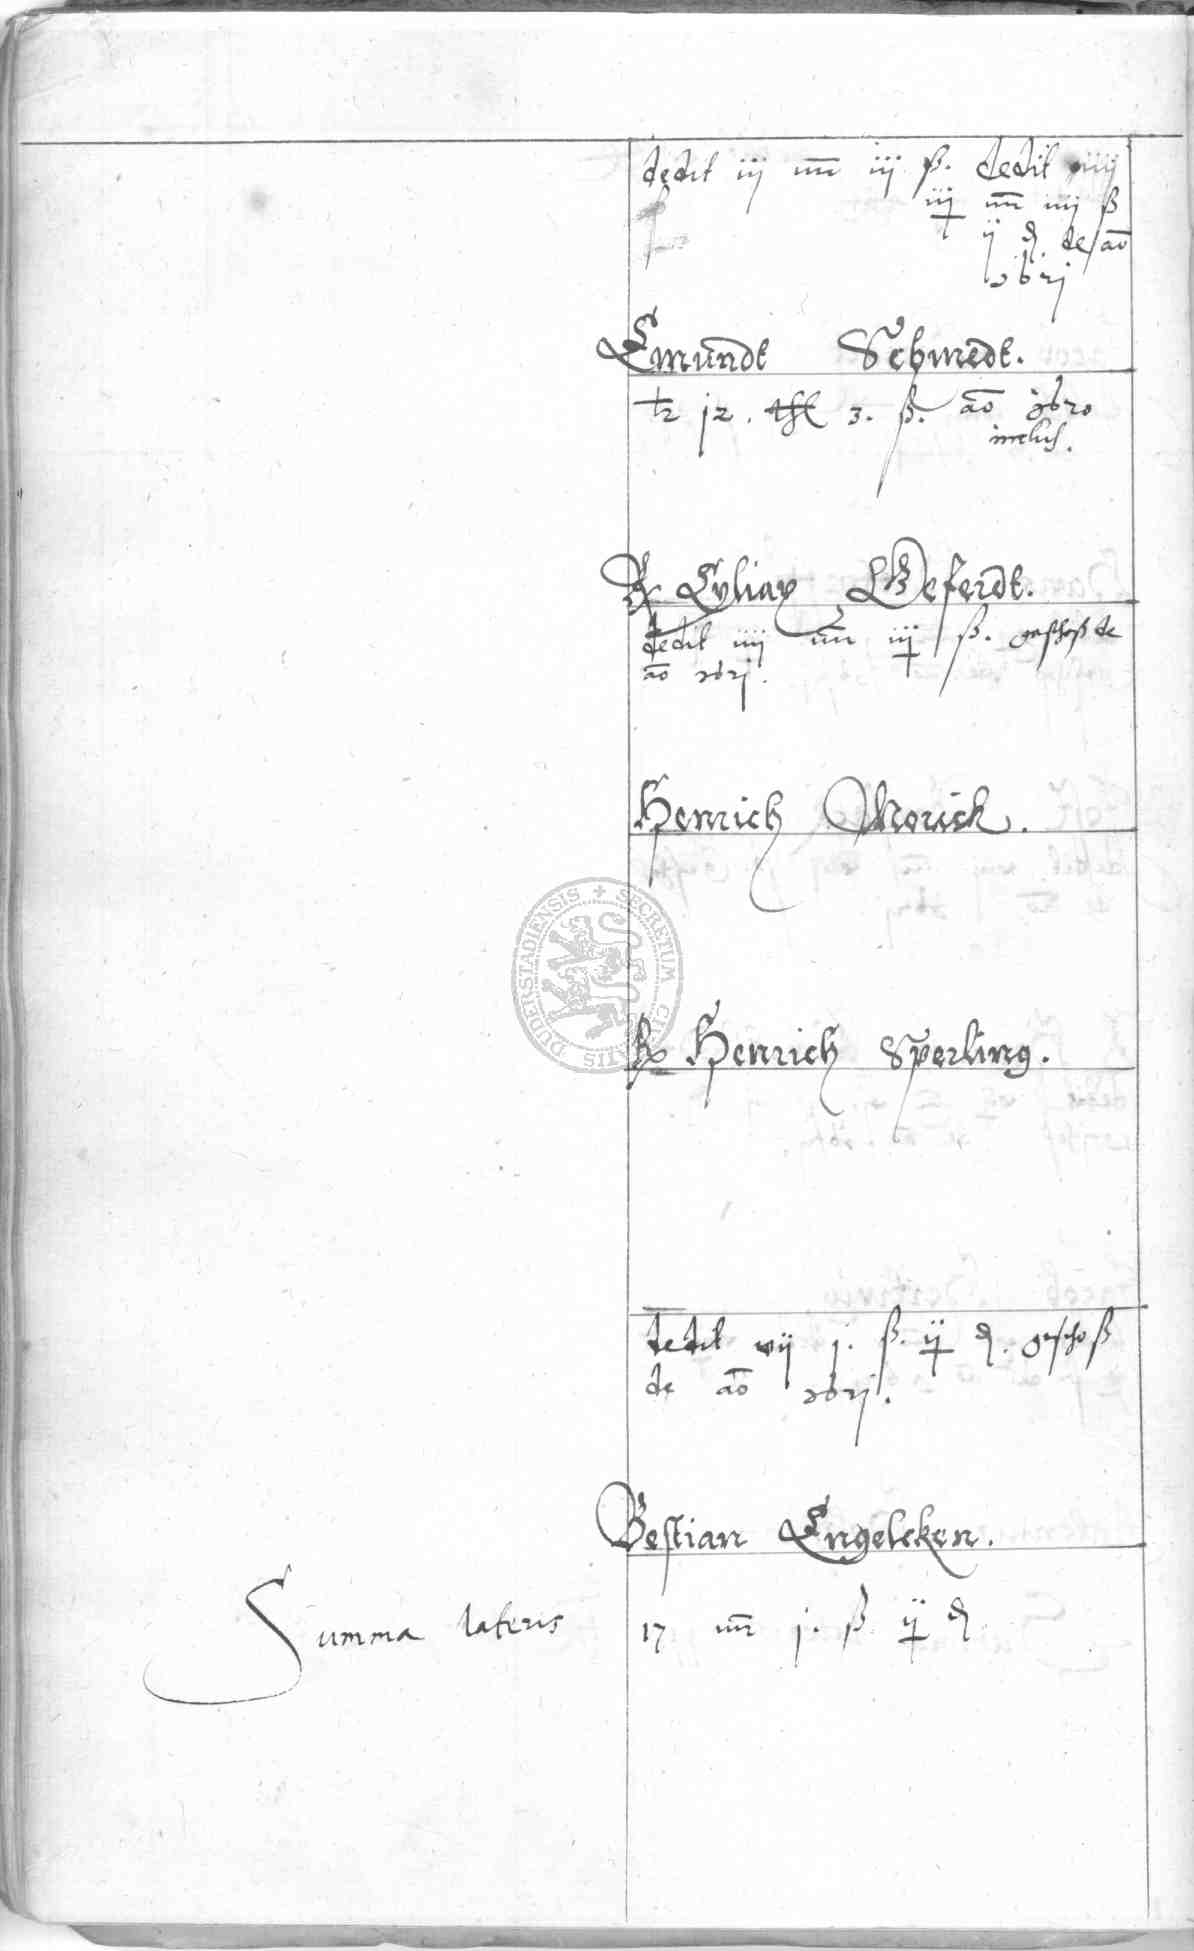 dedit iij mr iij ß. dedit iiij
iij mr iiij ß
ij d de ao
1621
Emundt Schmedt.
tz 12. thl 3. ß. ao 1620
inclus.
Cyliax Geferdt.
dedit iiij mr iij ß. geschoß de
ao 1621.
Henrich Morick.
SECRETUM CIVITATIS DUDERSTADIENSIS
Henrich Sperling.
dedit vij j. ß. ij d. geschoß
de ao 1621.
Bestian Engelcken.
Summa lateris 17 mr j. ß ij d